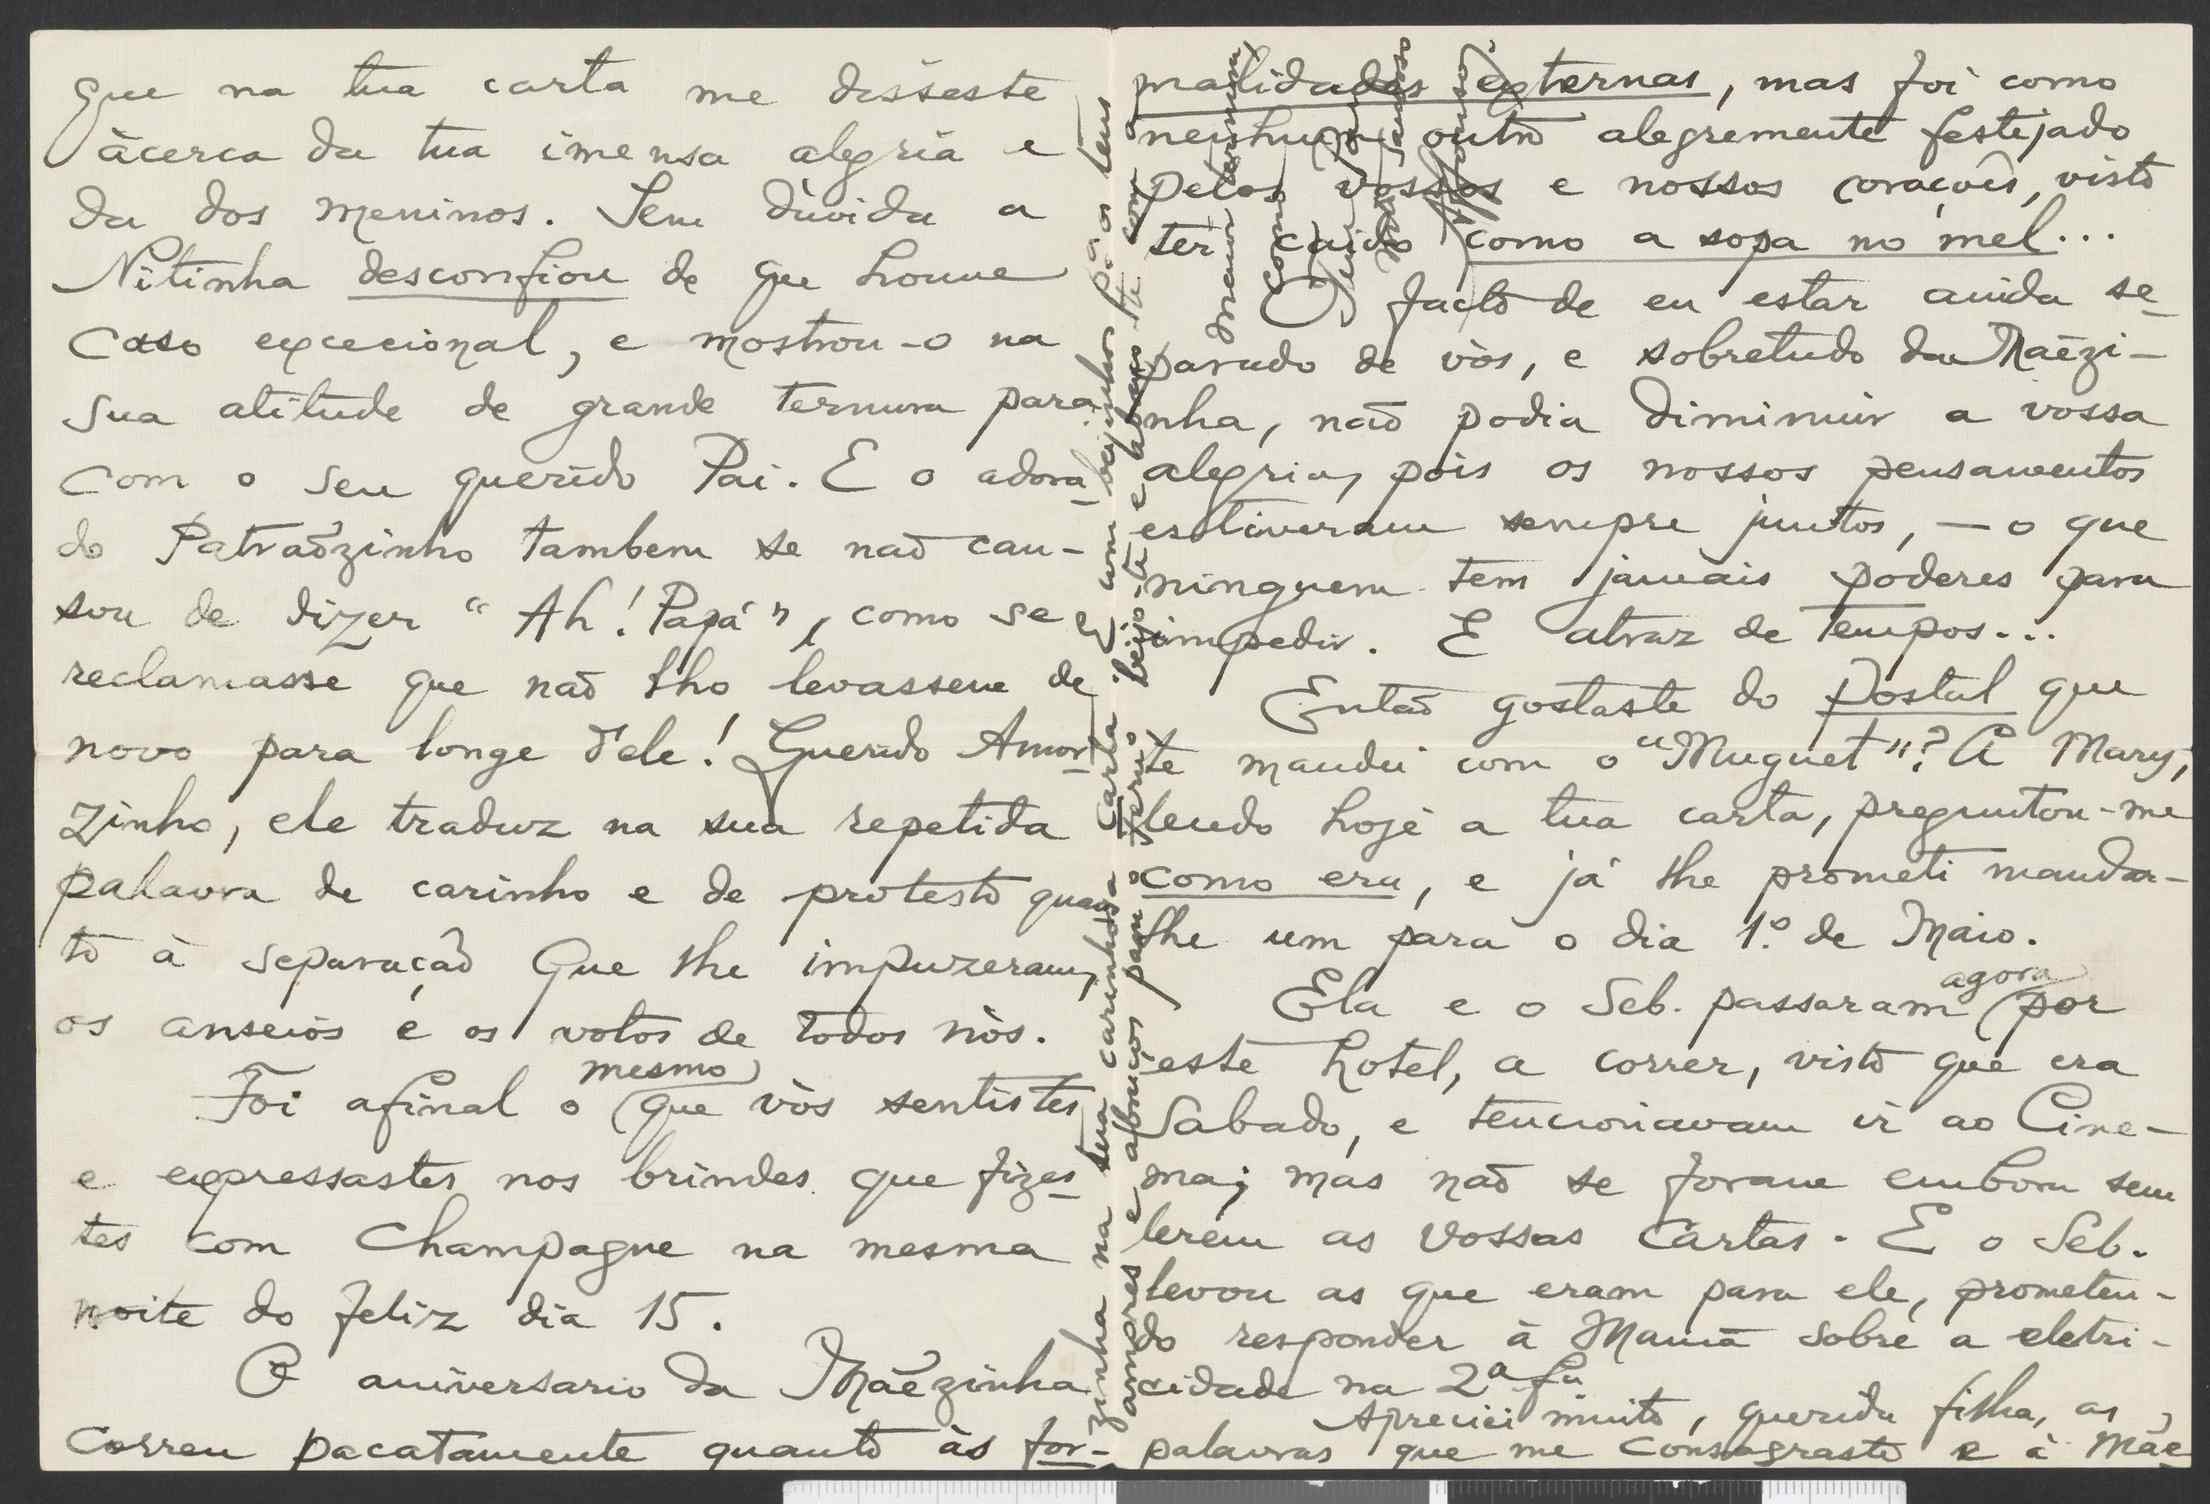 que na tua carta me disseste
àcerca da tua imensa alegria e
da dos meninos. Sem dùvida a
Nitinha desconfiou de que houve
caso excecional, e mostrou-o na
sua atitude de grande ternura para
com o seu querido Pai. E o adora-
do Patrãozinho tambem se não can-
sou de dizer "Ah! Papá", como se
reclamasse que não lho levassem de
novo para longe d'ele! Querido Amor-
zinho, ele traduz na sua repetida
palavra de carinho e de protesto quan-
to à separação que lhe impuzeram,
os anseios e os votos de todos nòs.
Foi afinal o mesmo que vòs sentistes
e expressastes nos brindes que fizes-
tes com Champagne na mesma
noite do feliz dia 15.
O aniversario da Mãezinha
correu pacatamente quanto às for-
malidades externas, mas foi como
nenhum outro alegremente festejado
pelos vossos e nossos corações, visto
ter caido como a sopa no mel...
O facto de eu estar ainda se-
parado de vòs, e sobretudo da Mãezi-
nha, não podia diminuir a vossa
alegria, pois os nossos pensamentos
estiveram sempre juntos, — o que
ninguem tem jamais poderes para
impedir. E atraz de tempos...
Então gostaste do Postal que
te mandei com o "Muguet"? A Mary,
lendo hoje a tua carta, preguntou-me
como era, e já lhe prometi mandar-
lhe um para o dia 1.º de Maio.
Ela e o Seb. passaram agora por
este hotel, a correr, visto que era
Sabado, e tencionavam ir ao Cine-
ma; mas não se foram embora sem
lerem as vossas cartas. E o Seb.
levou as que eram para ele, prometen-
do responder à Mamã sobre a eletri-
cidade na 2ª fª.
Apreciei muito, querida filha, as
palavras que me consagraste e à Mãe-
zinha na tua carinhosa carta. E com beijinhos p.ª os teus
amores e abraços para o Jerino, beija-te e abraça-te com a
maior ternura,
como
Teu Pai